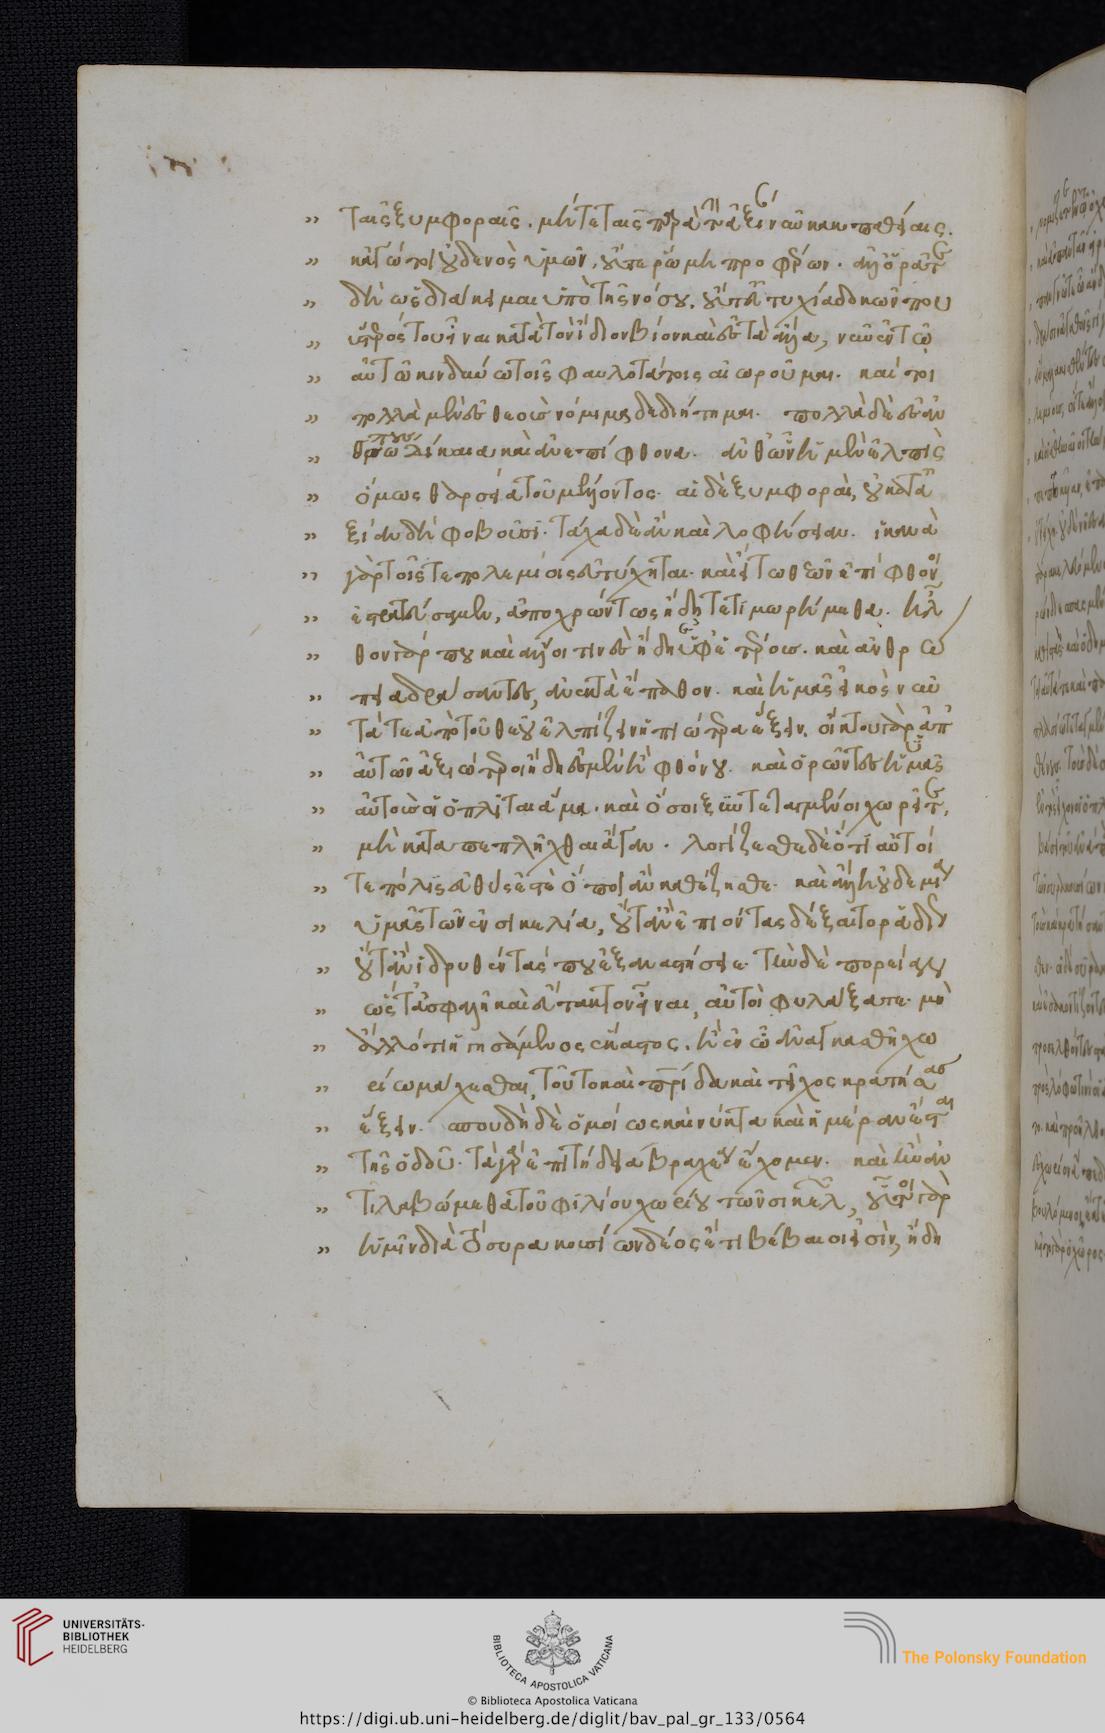 „ ταῖς ξυμφοραῖς. μήτε ταῖς παρὰ τὴν ἀξίαν νῦν κακοπαθείαις.
„ κἀγώ τοι οὐδενὸς ὑμῶν, οὔτε ῥώμῃ προφέρων. ἀλλ' ὁρᾶτε
„ δὴ ὡς διάκειμαι ὑπὸ τῆς νόσου, οὔτ' εὐτυχία δοκῶν που
„ ὕστερός του εἶναι κατὰ τὸν ἴδιον βίον καὶ ἐς τὰ ἄλλα, νῦν ἐν τῷ
„ αὐτῷ κινδύνω τοῖς φαυλοτάτοις αἰωροῦμαι. καί τοι
„ πολλὰ μὲν ἐς θεοὺς νόμιμα δεδιήτημαι. πολλὰ δὲ ἐς ἀν
„ θρώπους δίκαια καὶ ἀνεπίφθονα. ἀνθ' ὧν ἡ μὲν ἐλπὶς
„ ὅμως θρασεῖα τοῦ μέλλοντος. αἱ δὲ ξυμφοραὶ, οὐ κατ' ἀ
„ ξίαν δὴ φοβοῦσι. τάχα δὲ ἂν καὶ λοφήσειαν. ἱκανὰ
„ γὰρ τοῖς τε πολεμίοις εὐτύχηται. καὶ εἴ τω θεῶν ἐπίφθονοι
„ ἐστρατεύσαμεν, ἀποχρώντως ἤδη τετιμωρήμεθα. ἦλ
„ θον γάρ που καὶ ἄλλοι τινὲς ἤδη ἐφ' ἑτέρους. καὶ ἀνθρώ
„ πεια δράσαντες, ἀνεκτὰ ἔπαθον. καὶ ἡμᾶς εἰκὸς νῦν
„ τά τε ἀπὸ τοῦ θεοῦ ἐλπίζειν ἠπιώτερα ἕξειν. οἴκτου γὰρ ἀπ'
„ αὐτῶν ἀξιώτεροι ἤδη ἐσμὲν ἢ φθόνου. καὶ ὁρῶντες ἡμᾶς
„ αὐτοὺς οἷοι ὁπλῖται ἅμα. καὶ ὅσοι ξυντεταγμένοι χωρεῖτε,
„ μὴ καταπεπλῆχθαι ἄγαν. λογίζεσθε δὲ ὅτι αὐτοί
„ τε πόλις εὐθύς ἐστὲ ὅποι ἂν καθέζησθε. καὶ ἄλλη οὐδεμία
„ ὑμᾶς τῶν ἐν σικελία, οὔτ' ἂν ἐπιόντας δέξαιτο ῥαδίως
„ οὔτ' ἂν ἱδρυθέντάς που ἐξαναστήσειε. τὴν δὲ πορείαν
„ ὥστ' ἀσφαλῆ καὶ εὔτακτον εἶναι, αὐτοὶ φυλάξατε. μὴ
„ ἄλλό τι ἡγησάμενος ἕκαστος, ἢ ἐν ᾧ ἀναγκασθῇ χω
„ ρίω μάχεσθαι, τοῦτο καὶ πατρίδα καὶ τεῖχος κρατήσας
„ ἕξειν. σπουδὴ δὲ ὁμοίως καὶ νύκτα καὶ ἡμέραν ἔσται
„ τῆς ὁδοῦ. τὰ γὰρ ἐπιτήδεια βραχέα ἔχομεν. καὶ ἢν ἀν
„ τιλαβώμεθα τοῦ φιλίου χωρίου τῶν σικελῶν, οὗτοι γὰρ
„ ἡμῖν διὰ τὸ συρακοσίων δέος ἔτι βέβαιοι εἰσὶν, ἤδη
UNIVERSITÄTS-
BIBLIOTHEK
HEIDELBERG
BIBLIOTECA APOSTOLICA VATICANA
The Polonsky Foundation
© Biblioteca Apostolica Vaticana
https://digi.ub.uni-heidelberg.de/diglit/bav_pal_gr_133/0564